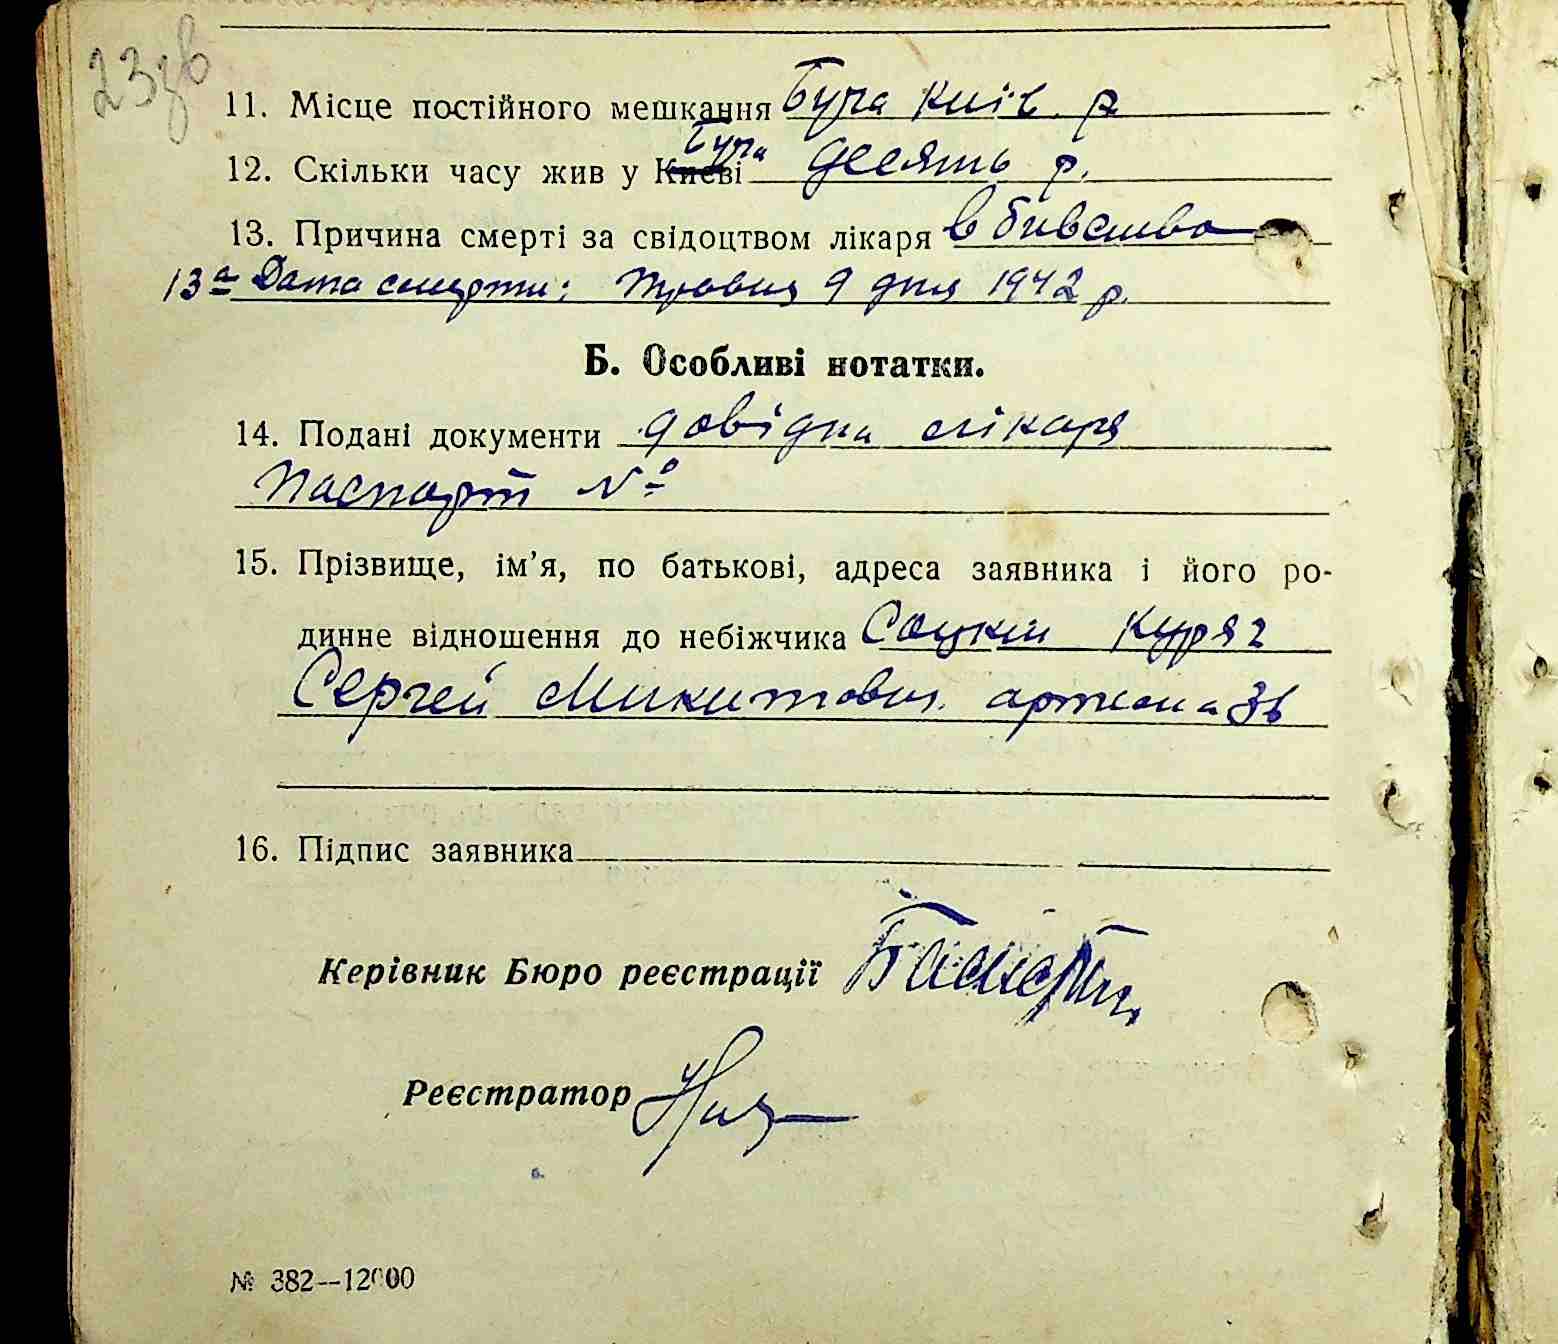 23зв
11. Місце постійного мешкання Буча Київ. р
12. Скільки часу жив у Києві Буча десять р.
13. Причина смерті за свідоцтвом лікаря вбивство
13а Дата смерти: травня 9 дня 1942 р.
Б. Особливі нотатки.
14. Подані документи довідка лікаря
Паспорт №
15. Прізвище, ім’я, по батькові, адреса заявника і його ро-
динне відношення до небіжчика Соцкий Куряч
Сергей Микитович. артема 36
16. Підпис заявника
Керівник Бюро реєстрації
Реєстратор
№ 382--12000